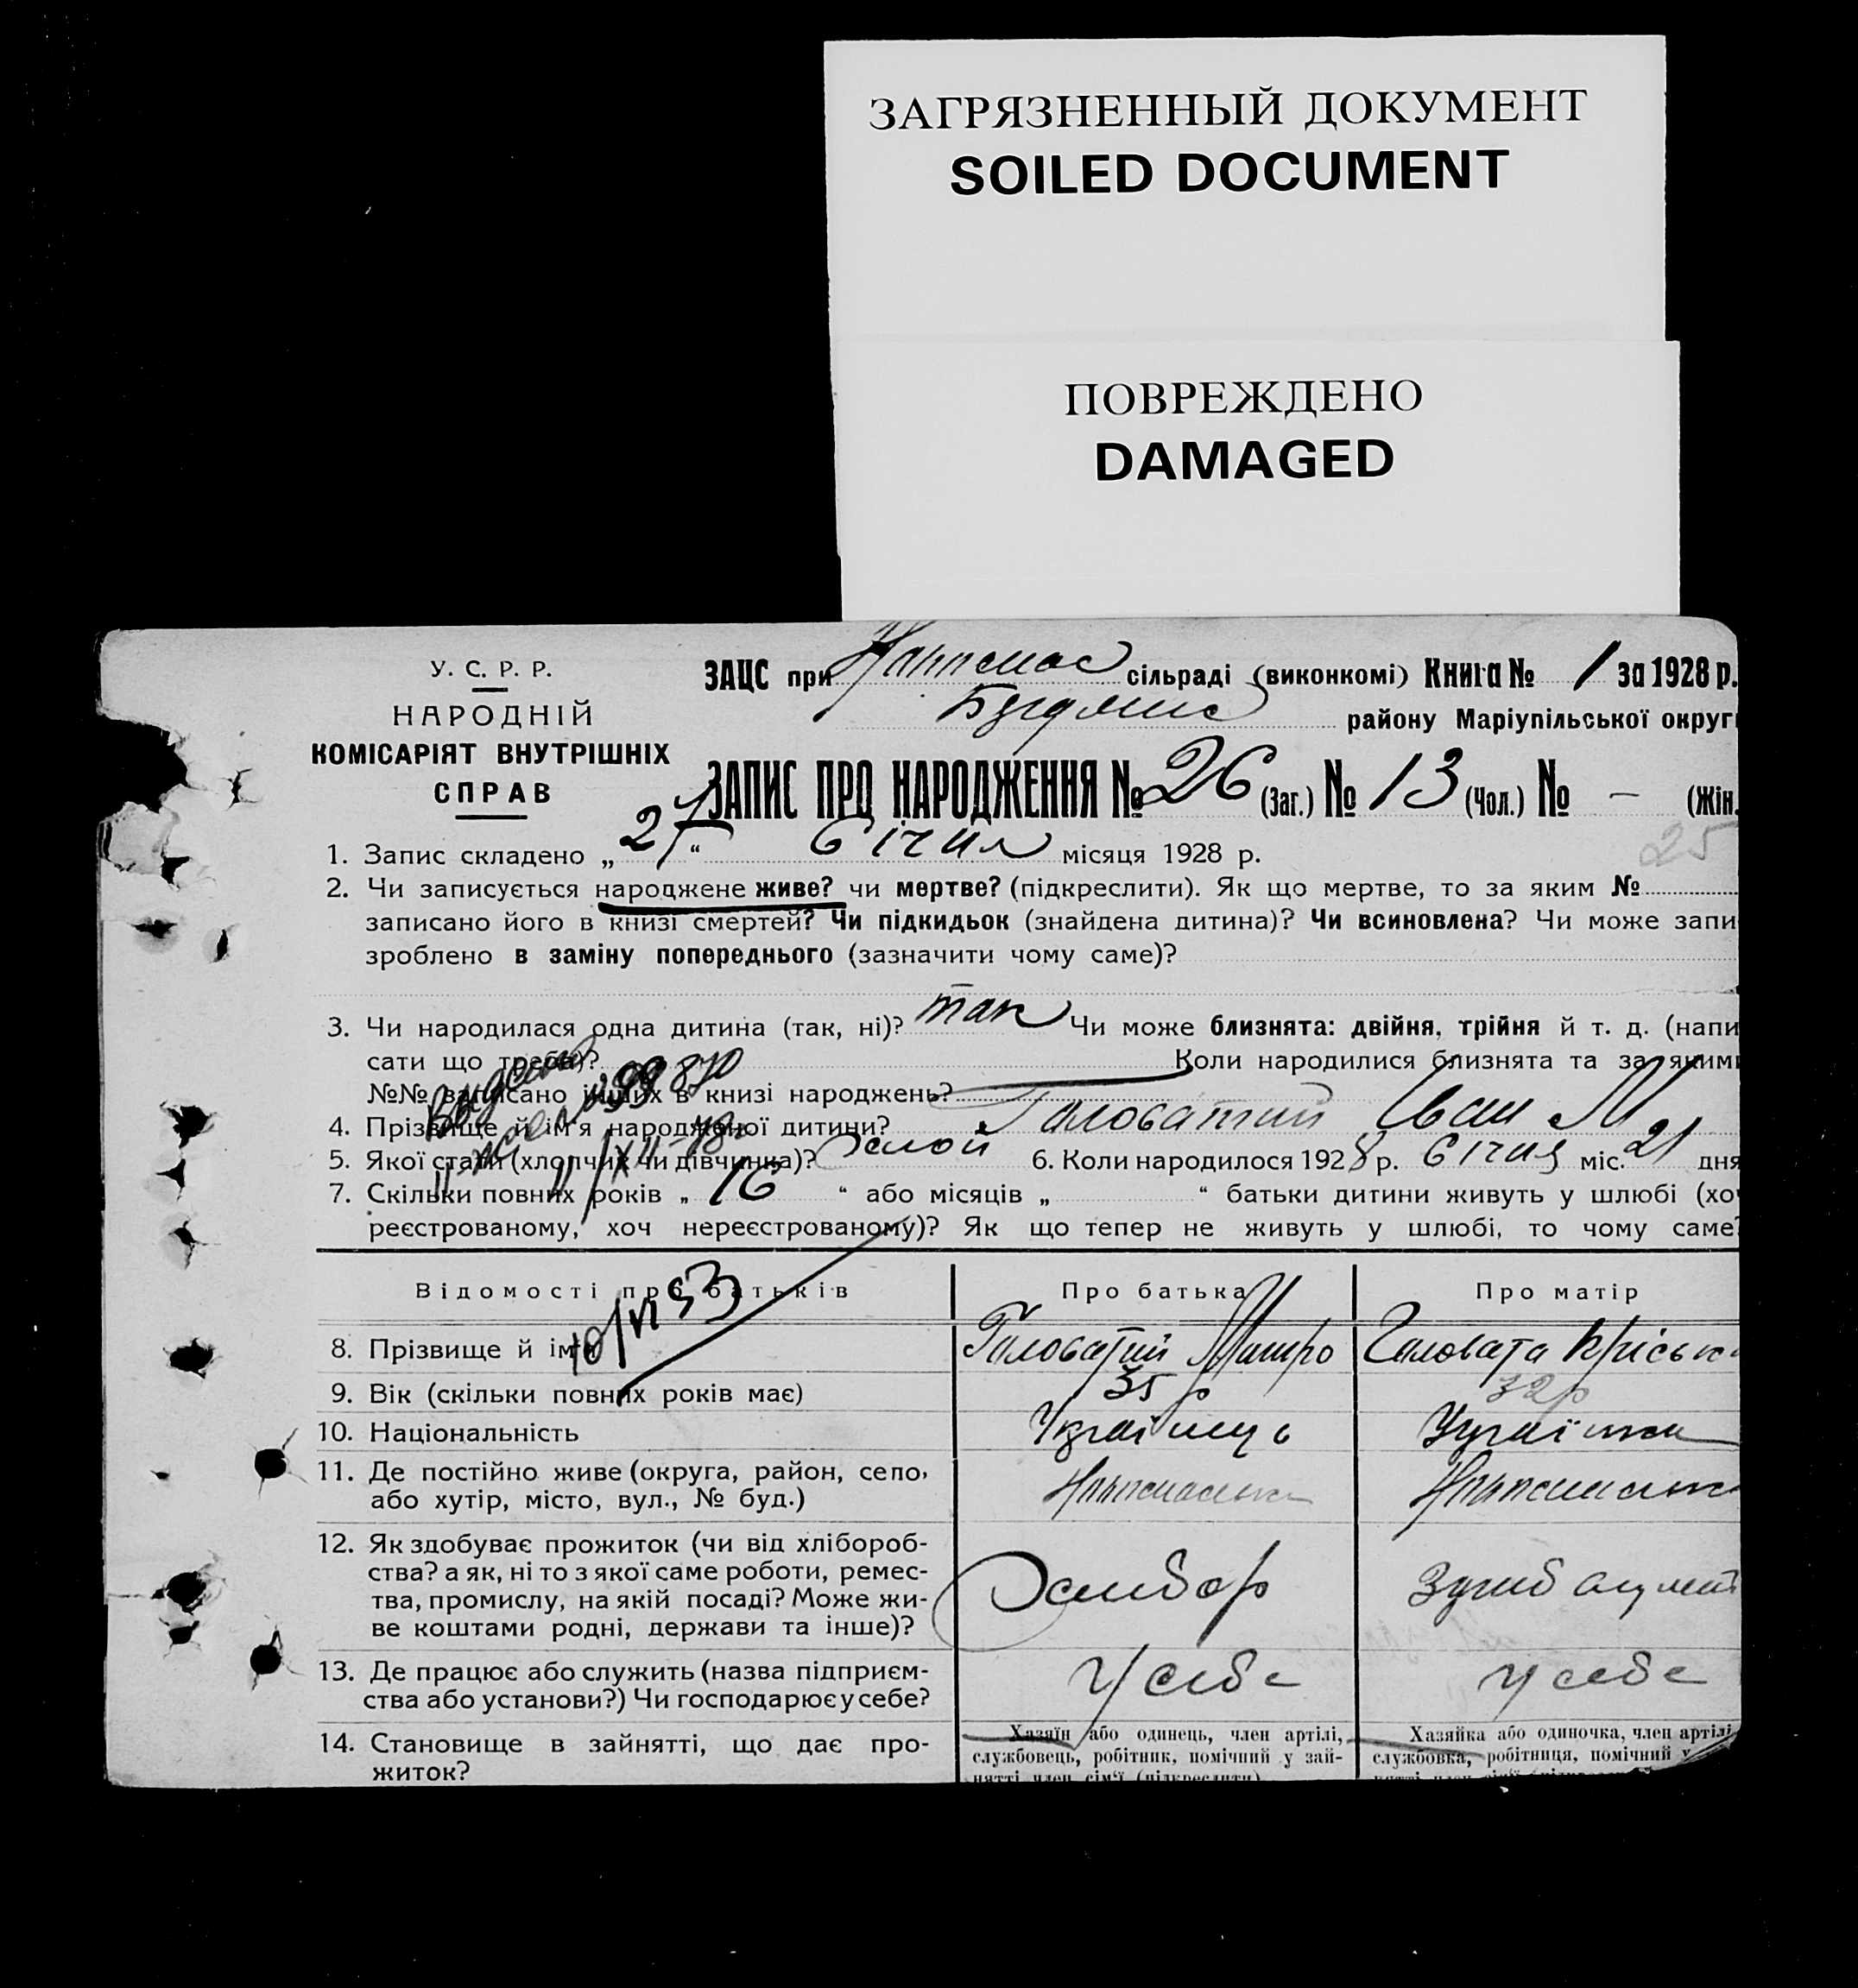 ЗАГРЯЗНЕННЫЙ ДОКУМЕНТ
SOILED DOCUMENT
ПОВРЕЖДЕНО
DAMAGED
У. С. Р. Р.
НАРОДНІЙ
КОМІСАРІЯТ ВНУТРІШНІХ
СПРАВ
ЗАЦС при сільраді (виконкомі) Книга № 1 за 1928 р.
району Маріупільської округи
ЗАПИС ПРО НАРОДЖЕННЯ № 26 (Заг.) № 13 (Чол.) № – (Жін.
25
1. Запис складено „ “ Січня місяця 1928 р.
2. Чи записується народжене живе? чи мертве? (підкреслити). Як що мертве, то за яким №
записано його в книзі смертей? Чи підкидьок (знайдена дитина)? Чи всиновлена? Чи може запи
зроблено в заміну попереднього (зазначити чому саме)?
3. Чи народилася одна дитина (так, ні)? так Чи може близнята: двійня, трійня й т. д. (напи
сати що треба)? Коли народилися близнята та за якими
№№ записано інших в книзі народжень?
4. Прізвище й ім'я народженої дитини? Головатий Іван М
5. Якої стати (хлопчик чи дівчинка)? 6. Коли народилося 1928 р. Січня міс. 21 дня
7. Скільки повних років „ 16 “ або місяців „ “ батьки дитини живуть у шлюбі (хоч
реєстрованому, хоч нереєстрованому)? Як що тепер не живуть у шлюбі, то чому саме?
Відомості про батьків Про батька Про матір
8. Прізвище й ім'я Головатий Головата
9. Вік (скільки повних років має) 35 р 32 р
10. Національність Українць Українка
11. Де постійно живе (округа, район, село,
або хутір, місто, вул., № буд.)
12. Як здобуває прожиток (чи від хлібороб-
ства? а як, ні то з якої саме роботи, ремес-
тва, промислу, на якій посаді? Може жи-
ве коштами родні, держави та інше)?
13. Де працює або служить (назва підприєм-
ства або установи?) Чи господарює у себе? У себе У себе
14. Становище в зайнятті, що дає про-
житок?
Хазяїн або одинець, член артілі,
службовець, робітник, помічний у зай-
нятті член сім'ї (підкреслити)
Хазяйка або одиночка, член артілі
службовка, робітниця, помічний у